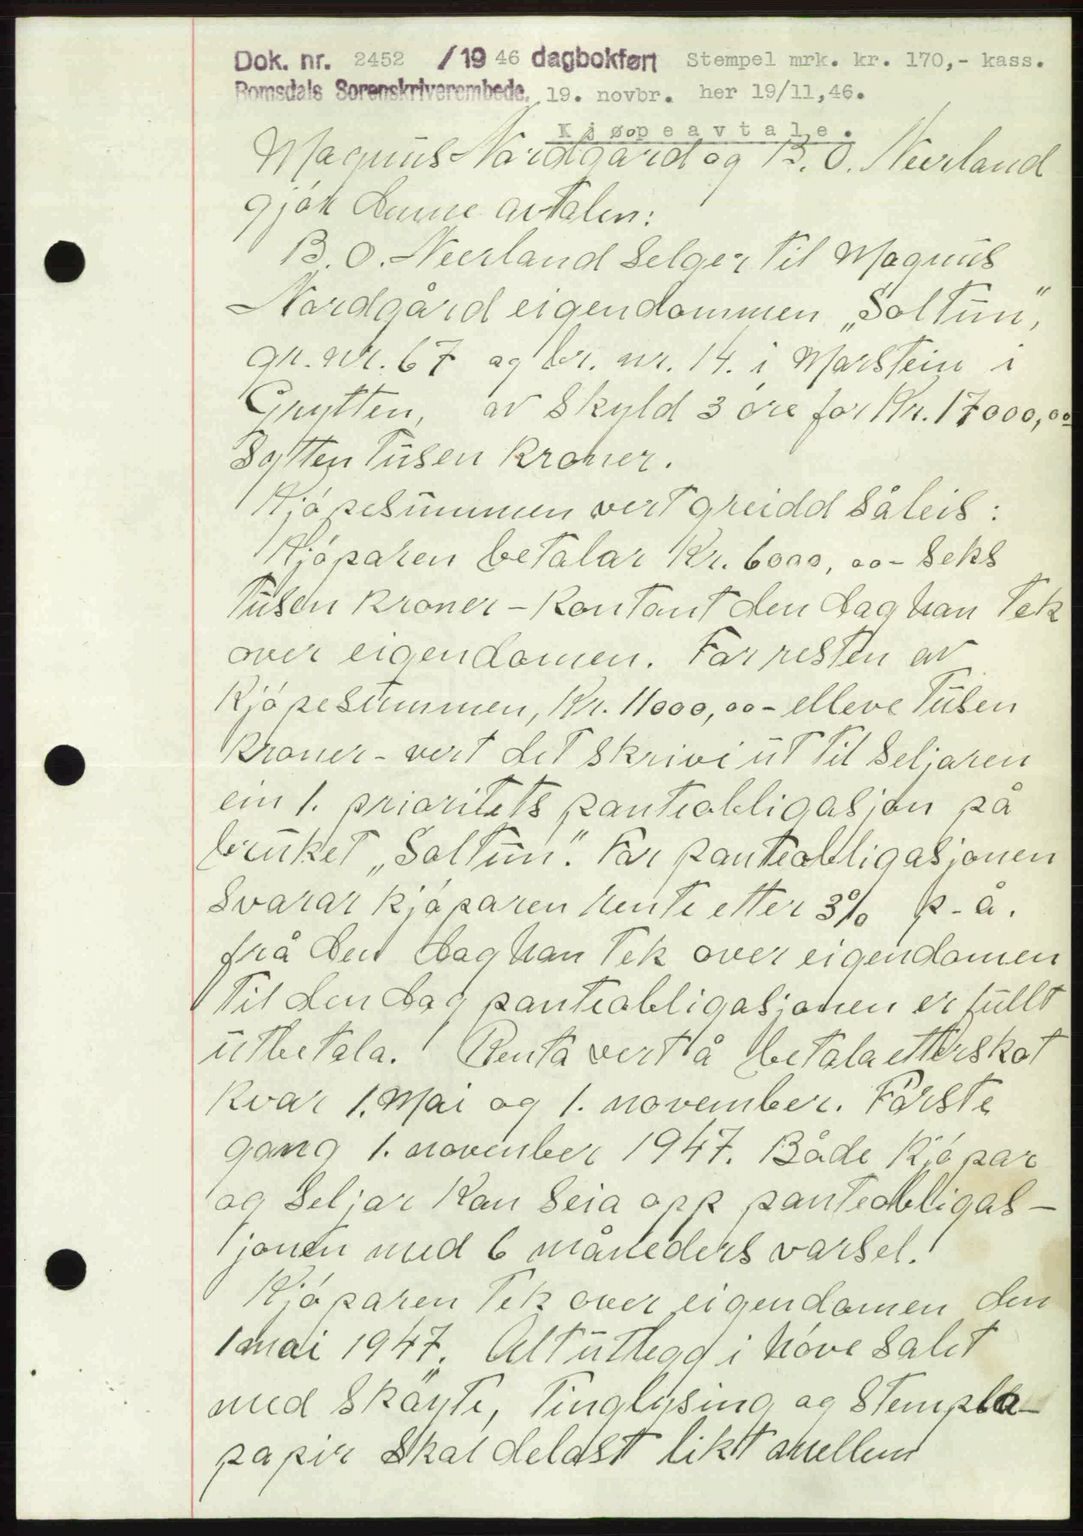 Dok. nr. 2452 /1946 dagbokført Stempel mrk. kr. 170,- kass.
Romsdals Sorenskriverembede. 19. novbr. her 19/11,46.
Kjøpeavtale.
Magnus Nordgård og B. O. Neerland
gjør denne avtalen:
B. O. Neerland selger til Magnus
Nordgård eigendommen „Soltun",
gr. nr. 67 og br. nr. 14. i Marstein i
Grytten, av skyld 3 øre for Kr. 17000,00
Sytten tusen kroner.
Kjøpesummen vert greidd såleis:
Kjøparen betalar Kr. 6000,00 - seks
tusen kroner - kontant den dag han tek
over eigendomen. For resten av
kjøpesummen, Kr. 11000,00 - elleve tusen
kroner - vert det skrivi ut til seljaren
ein 1. prioritets panteobligasjon på
bruket „Soltun". For panteobligasjonen
svarar kjøparen rente etter 3% p-å.
frå den dag han tek over eigendomen
til den dag panteobligasjonen er fullt
utbetala. Renta vert å betala etterskot
kvar 1. Mai og 1. november. Første
gang 1. november 1947. Både kjøpar
og seljar kan seia opp panteobligas-
jonen med 6 måneders varsel.
Kjøparen tek over eigendomen den
1 mai 1947. Alt utlegg i høve salet
med skøyte, tinglysing og stempla-
papir skal delast likt mellom